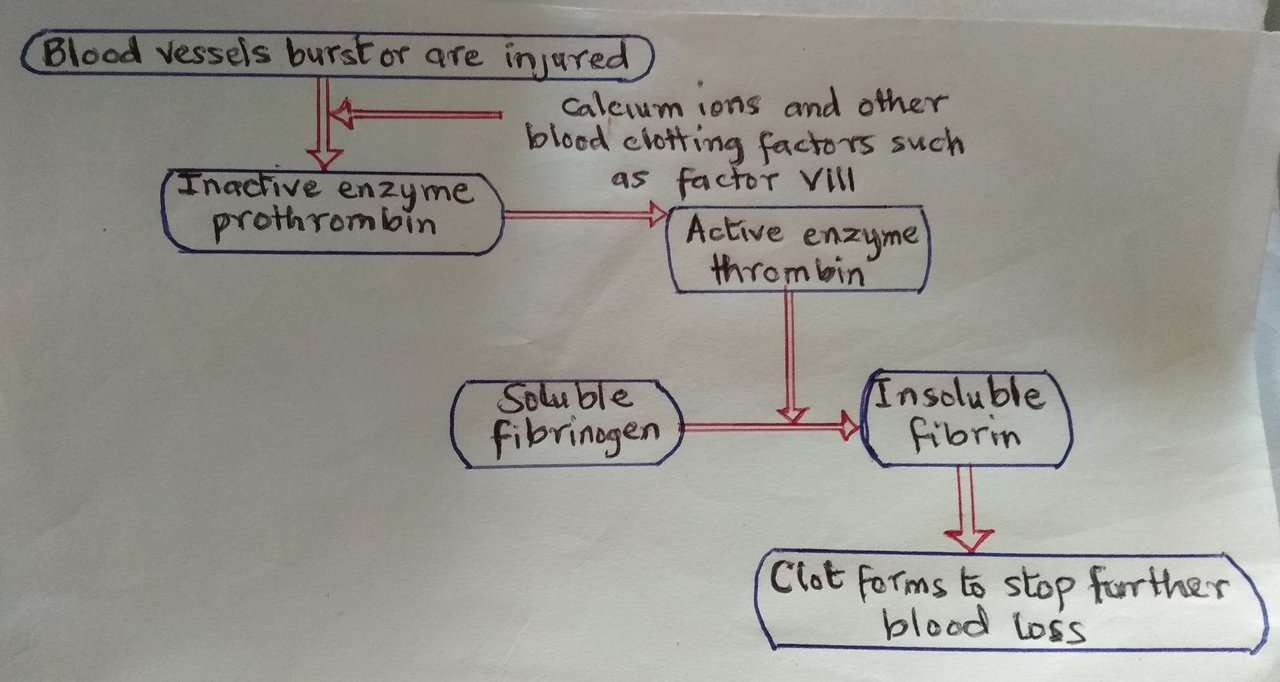 Blood vessels burst or are injured
Calcium ions and other
blood clotting factors such
as factor VIII
Inactive enzyme
prothrombin
Active enzyme
thrombin
Soluble
fibrinogen
Insoluble
fibrin
Clot forms to stop further
blood loss